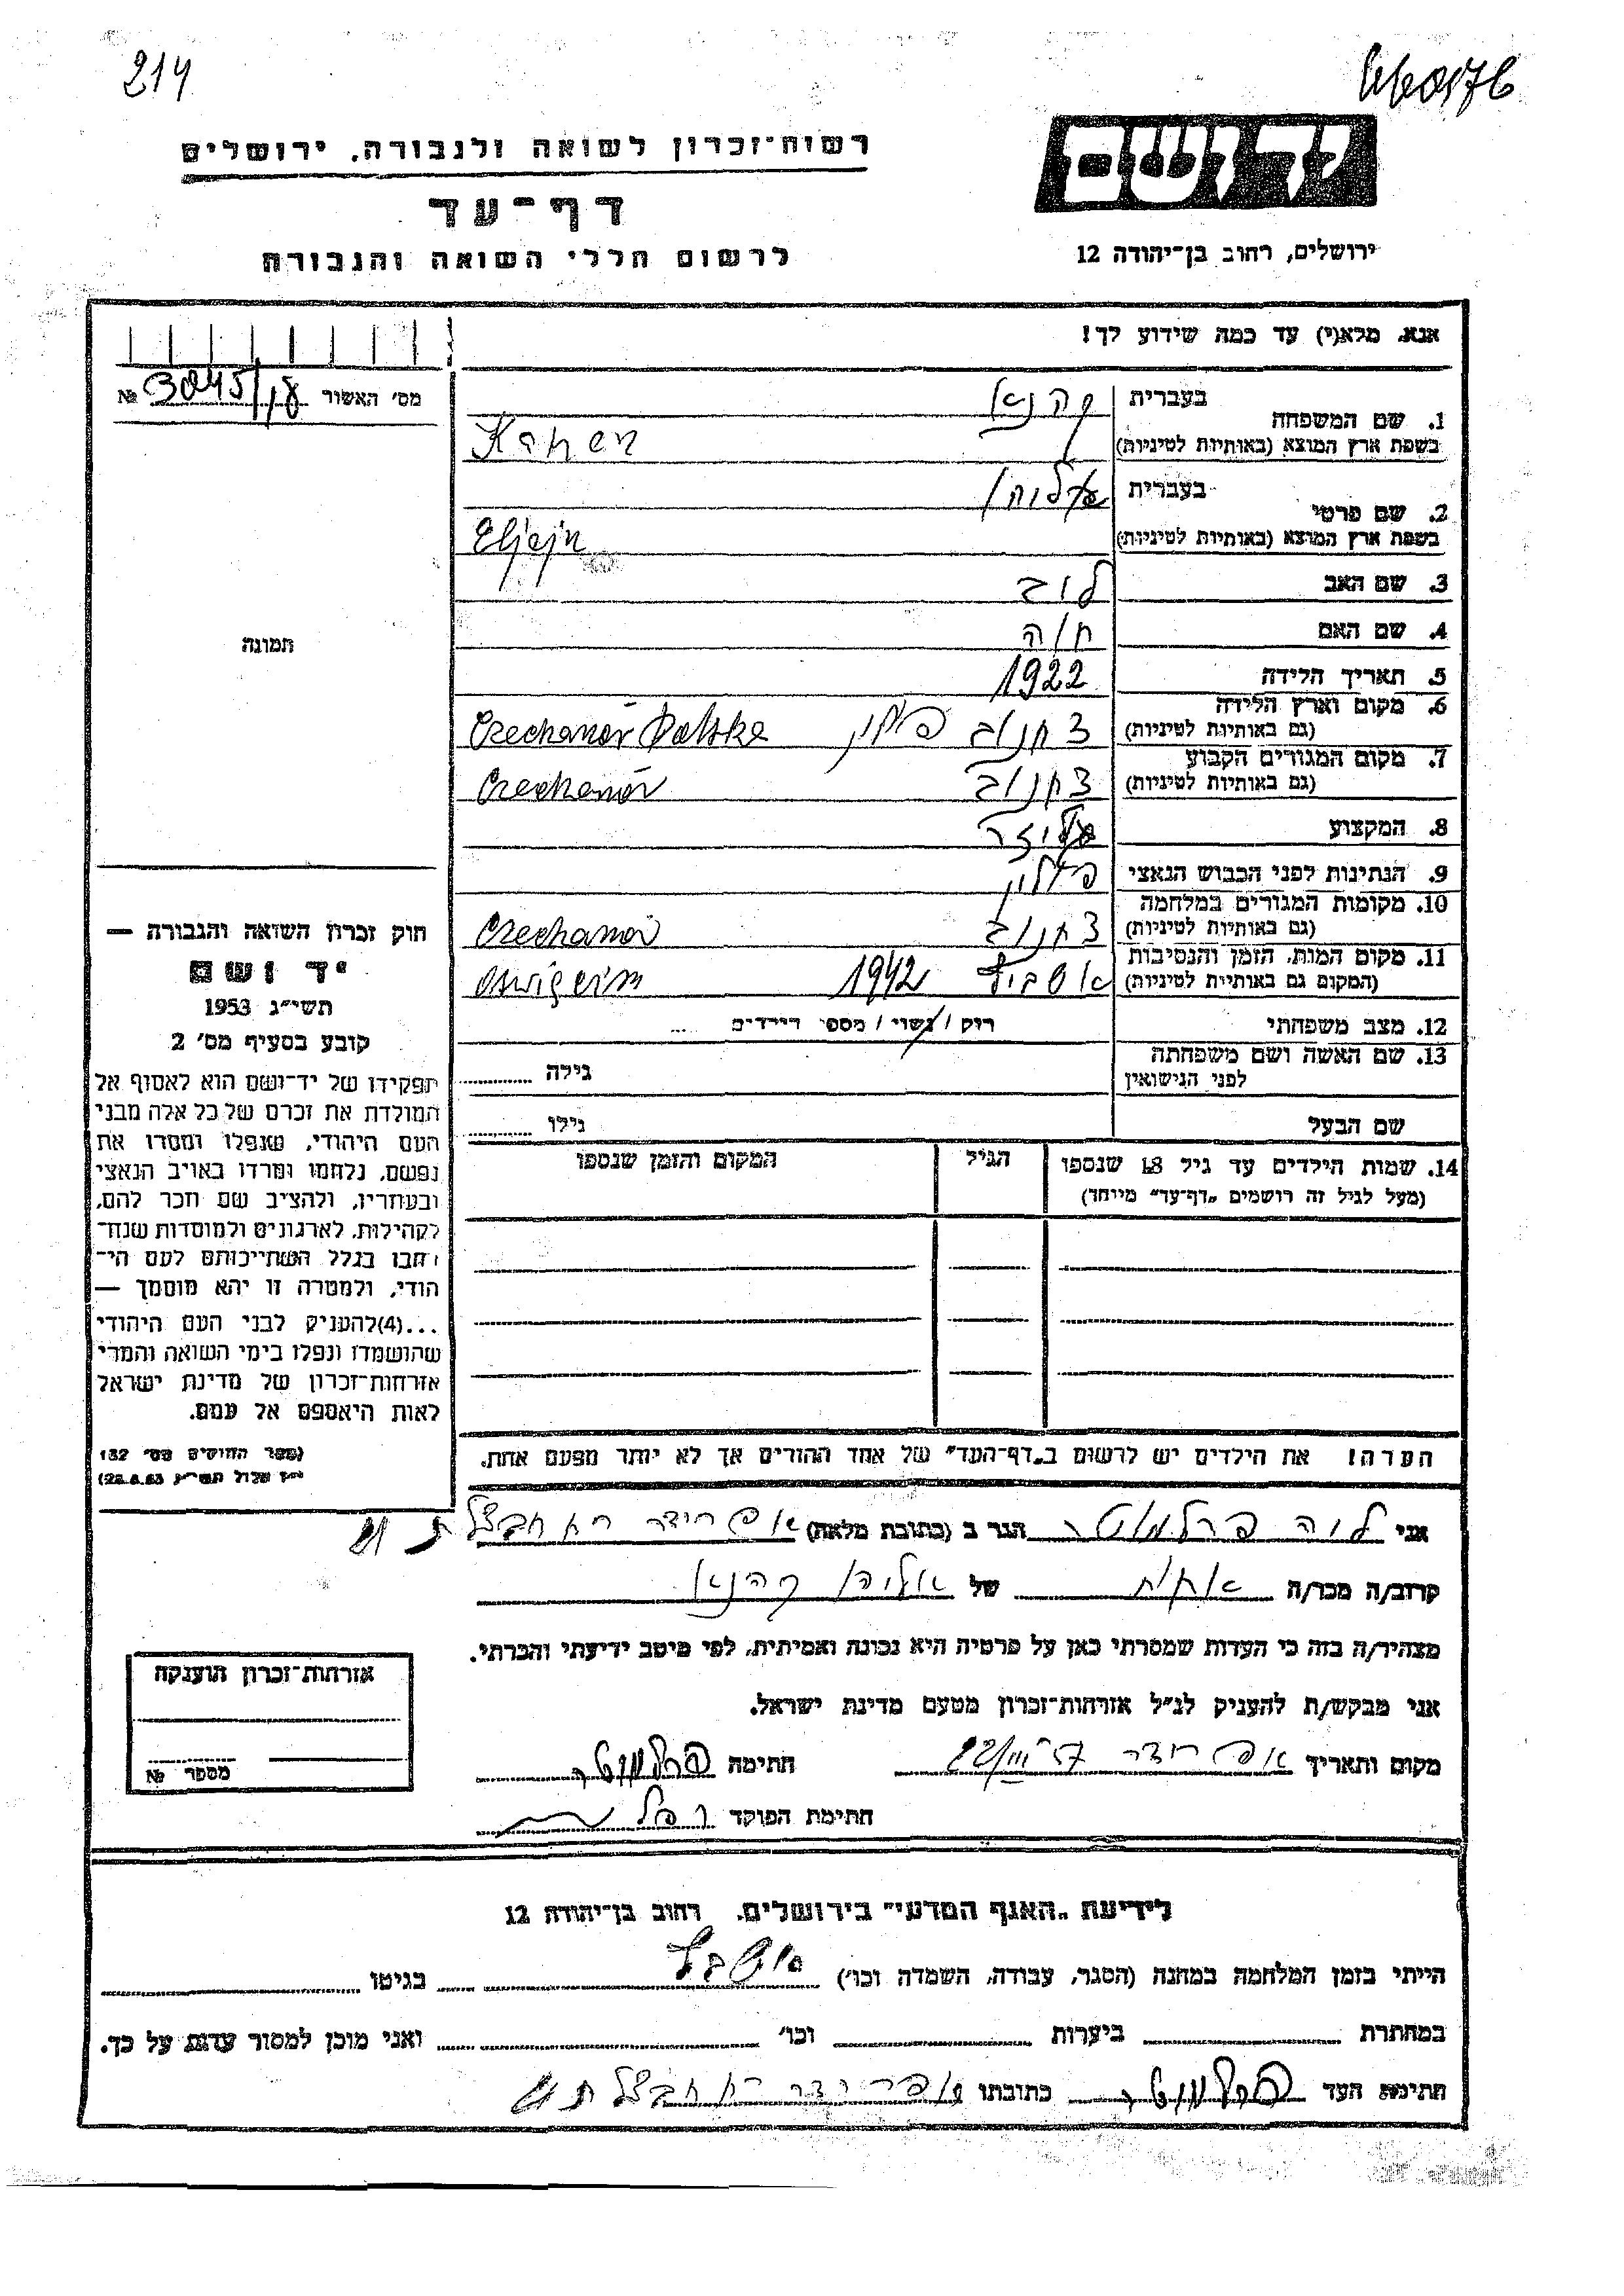 214
רשות־זכרון לשואה ולגבורה, ירושלים
דף־עד
לרשום חללי השואה והגבורה
ידושם
ירושלים, רחוב בן־יהודה 12
אנא, מלא(י) עד כמה שידוע לך!
מס' האשור №
1. שם המשפחה
בעברית קהנא
בשפת ארץ המוצא (באותיות לטיניות) Kahen
2. שם פרטי
בעברית
בשפת ארץ המוצא (באותיות לטיניות)
3. שם האב לוב
4. שם האם חוה
5. תאריך הלידה 1922
6. מקום וארץ הלידה
(גם באותיות לטיניות) צחנוב פולין Czechanów Polska
7. מקום המגורים הקבוע
(גם באותיות לטיניות) צחנוב Czechanów
8. המקצוע
9. הנתינות לפני הכבוש הנאצי פולין
10. מקומות המגורים במלחמה
(גם באותיות לטיניות) צחנוב Czechanów
11. מקום המות, הזמן והנסיבות
(המקום גם באותיות לטיניות) 1942
12. מצב משפחתי רוק / נשוי / מספר הילדים ...
13. שם האשה ושם משפחתה
לפני הנישואין גילה
שם הבעל גילו
14. שמות הילדים עד גיל 18 שנספו הגיל המקום והזמן שנספו
(מעל לגיל זה רושמים „דף־עד" מיוחד)
הערה! את הילדים יש לרשום ב„דף־העד" של אחד ההורים אך לא יותר מפעם אחת.
תמונה
חוק זכרון השואה והגבורה —
יד ושם
תשי"ג 1953
קובע בסעיף מס' 2
תפקידו של יד־ושם הוא לאסוף אל
המולדת את זכרם של כל אלה מבני
העם היהודי, שנפלו ומסרו את
נפשם, נלחמו ומרדו באויב הנאצי
ובעוזריו, ולהציב שם וזכר להם,
לקהילות, לארגונים ולמוסדות שנח־
רבו בגלל השתייכותם לעם הי־
הודי, ולמטרה זו יהא מוסמך —
...(4)להעניק לבני העם היהודי
שהושמדו ונפלו בימי השואה והמרי
אזרחות־זכרון של מדינת ישראל
לאות היאספם אל עמם.
(ספר החוקים מס' 132
י"ז אלול תשי"ג 28.8.53)
אני הגר ב (כתובת מלאה)
קרוב/ה מכר/ה אחות של קהנא
מצהיר/ה בזה כי העדות שמסרתי כאן על פרטיה היא נכונה ואמיתית, לפי מיטב ידיעתי והכרתי.
אני מבקש/ת להעניק לנ"ל אזרחות־זכרון מטעם מדינת ישראל.
מקום ותאריך חתימה
חתימת הפוקד
אזרחות־זכרון הוענקה
מספר №
לידיעת „האגף המדעי" בירושלים. רחוב בן־יהודה 12
הייתי בזמן המלחמה במחנה (הסגר, עבודה, השמדה וכו') בגיטו
במחתרת ביערות וכו' ואני מוכן למסור עדות על כך.
חתימת העד כתובתו